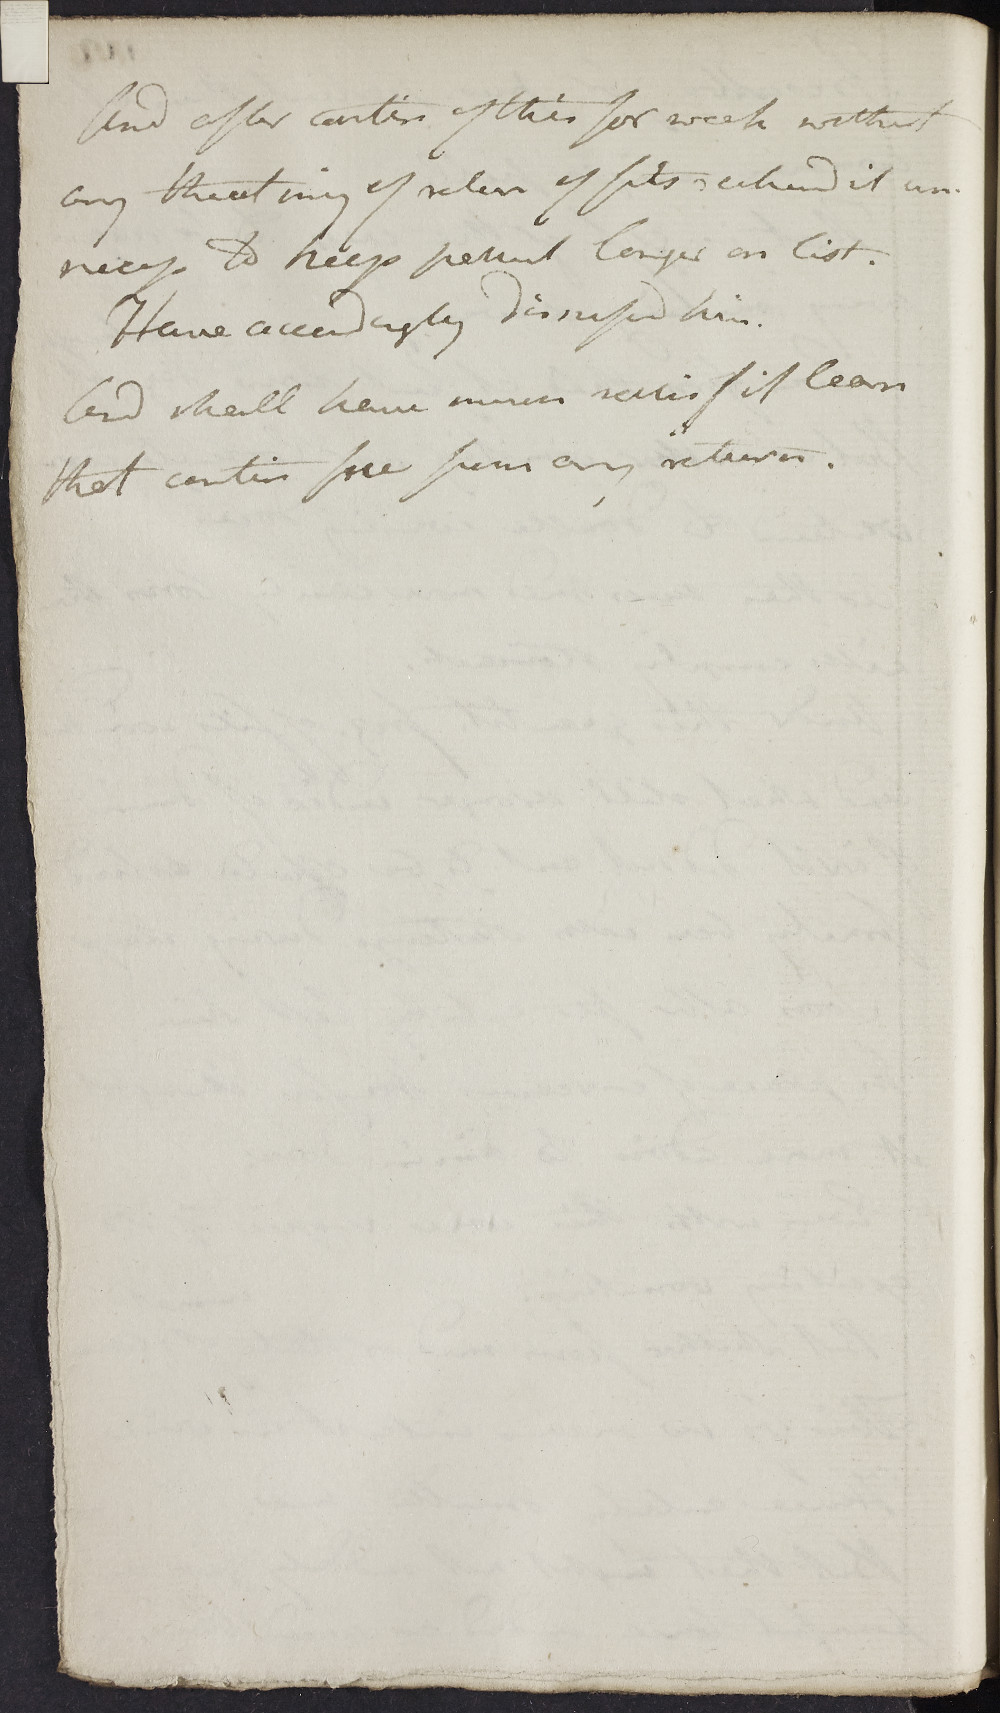 And after contin of this for week without
any threatning of return of fits reckend it un-
necess to keep patient longer on list.
Have accordingly dismissed him.
And shall have much satisf if learn
that contin free from any return.